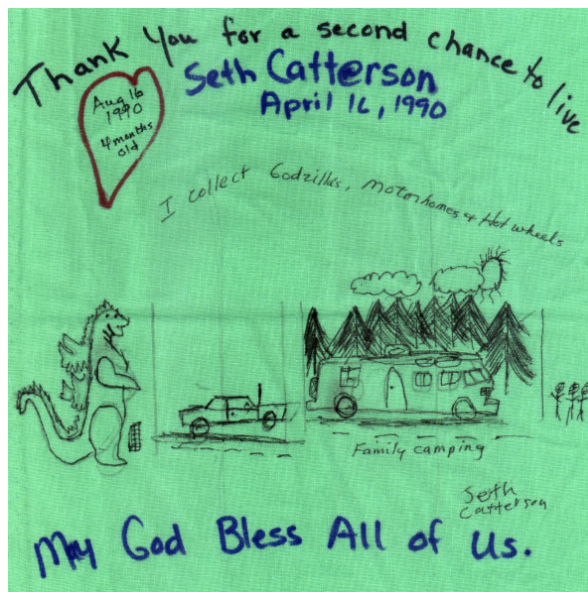 Thank You for a second chance to live
Seth Catterson
April 16, 1990
Aug 16
1990
4 months
old
I collect Godzillas, Motorhomes & Hot wheels
Family camping
Seth
Catterson
May God Bless All of Us.